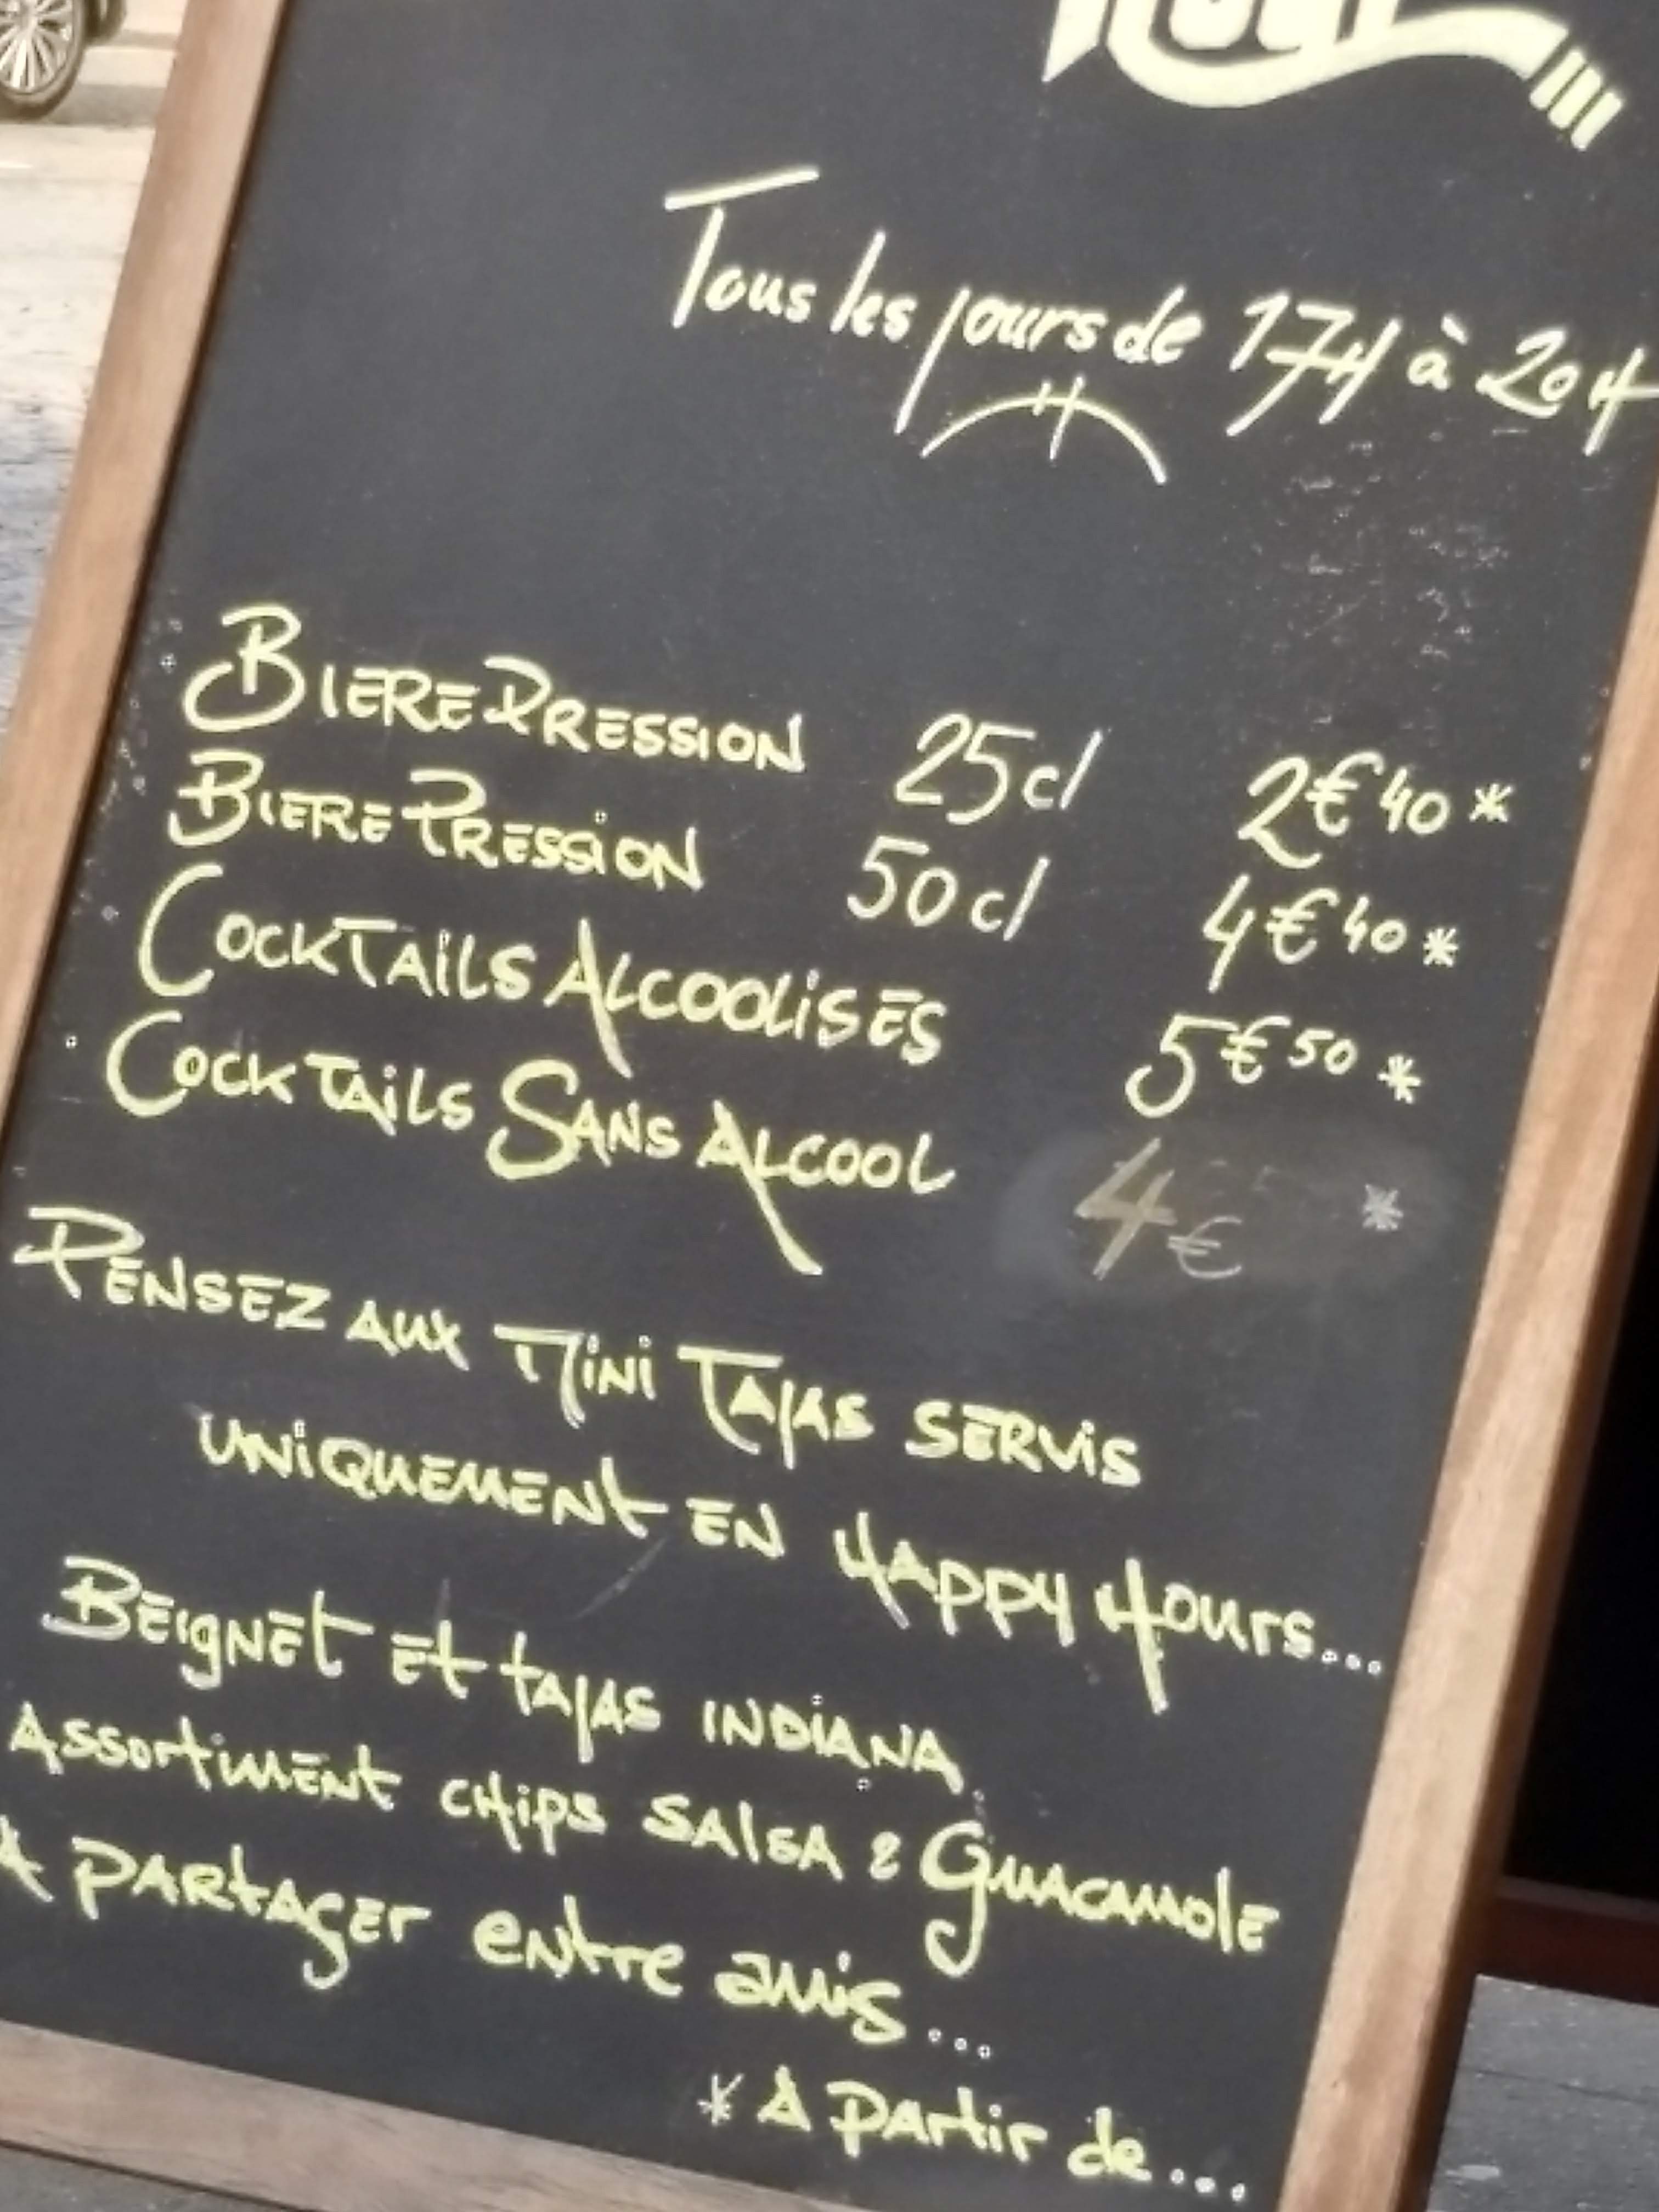 Tous les jours de 17H à 20H
BIERE PRESSION 25cl 2€40*
BIERE PRESSION 50cl 4€40*
COCKTAILS ALCOOLISES 5€50*
COCKTAILS SANS ALCOOL 4€ *
PENSEZ AUX MINI TAJAS SERVIS
UNIQUEMENT EN HAPPY HOURS...
BEIGNET ET TAJAS INDIANA
ASSORTIMENT CHIPS SALSA & GUACAMOLE
A PARTAGER ENTRE AMIS...
* A PARTIR de...